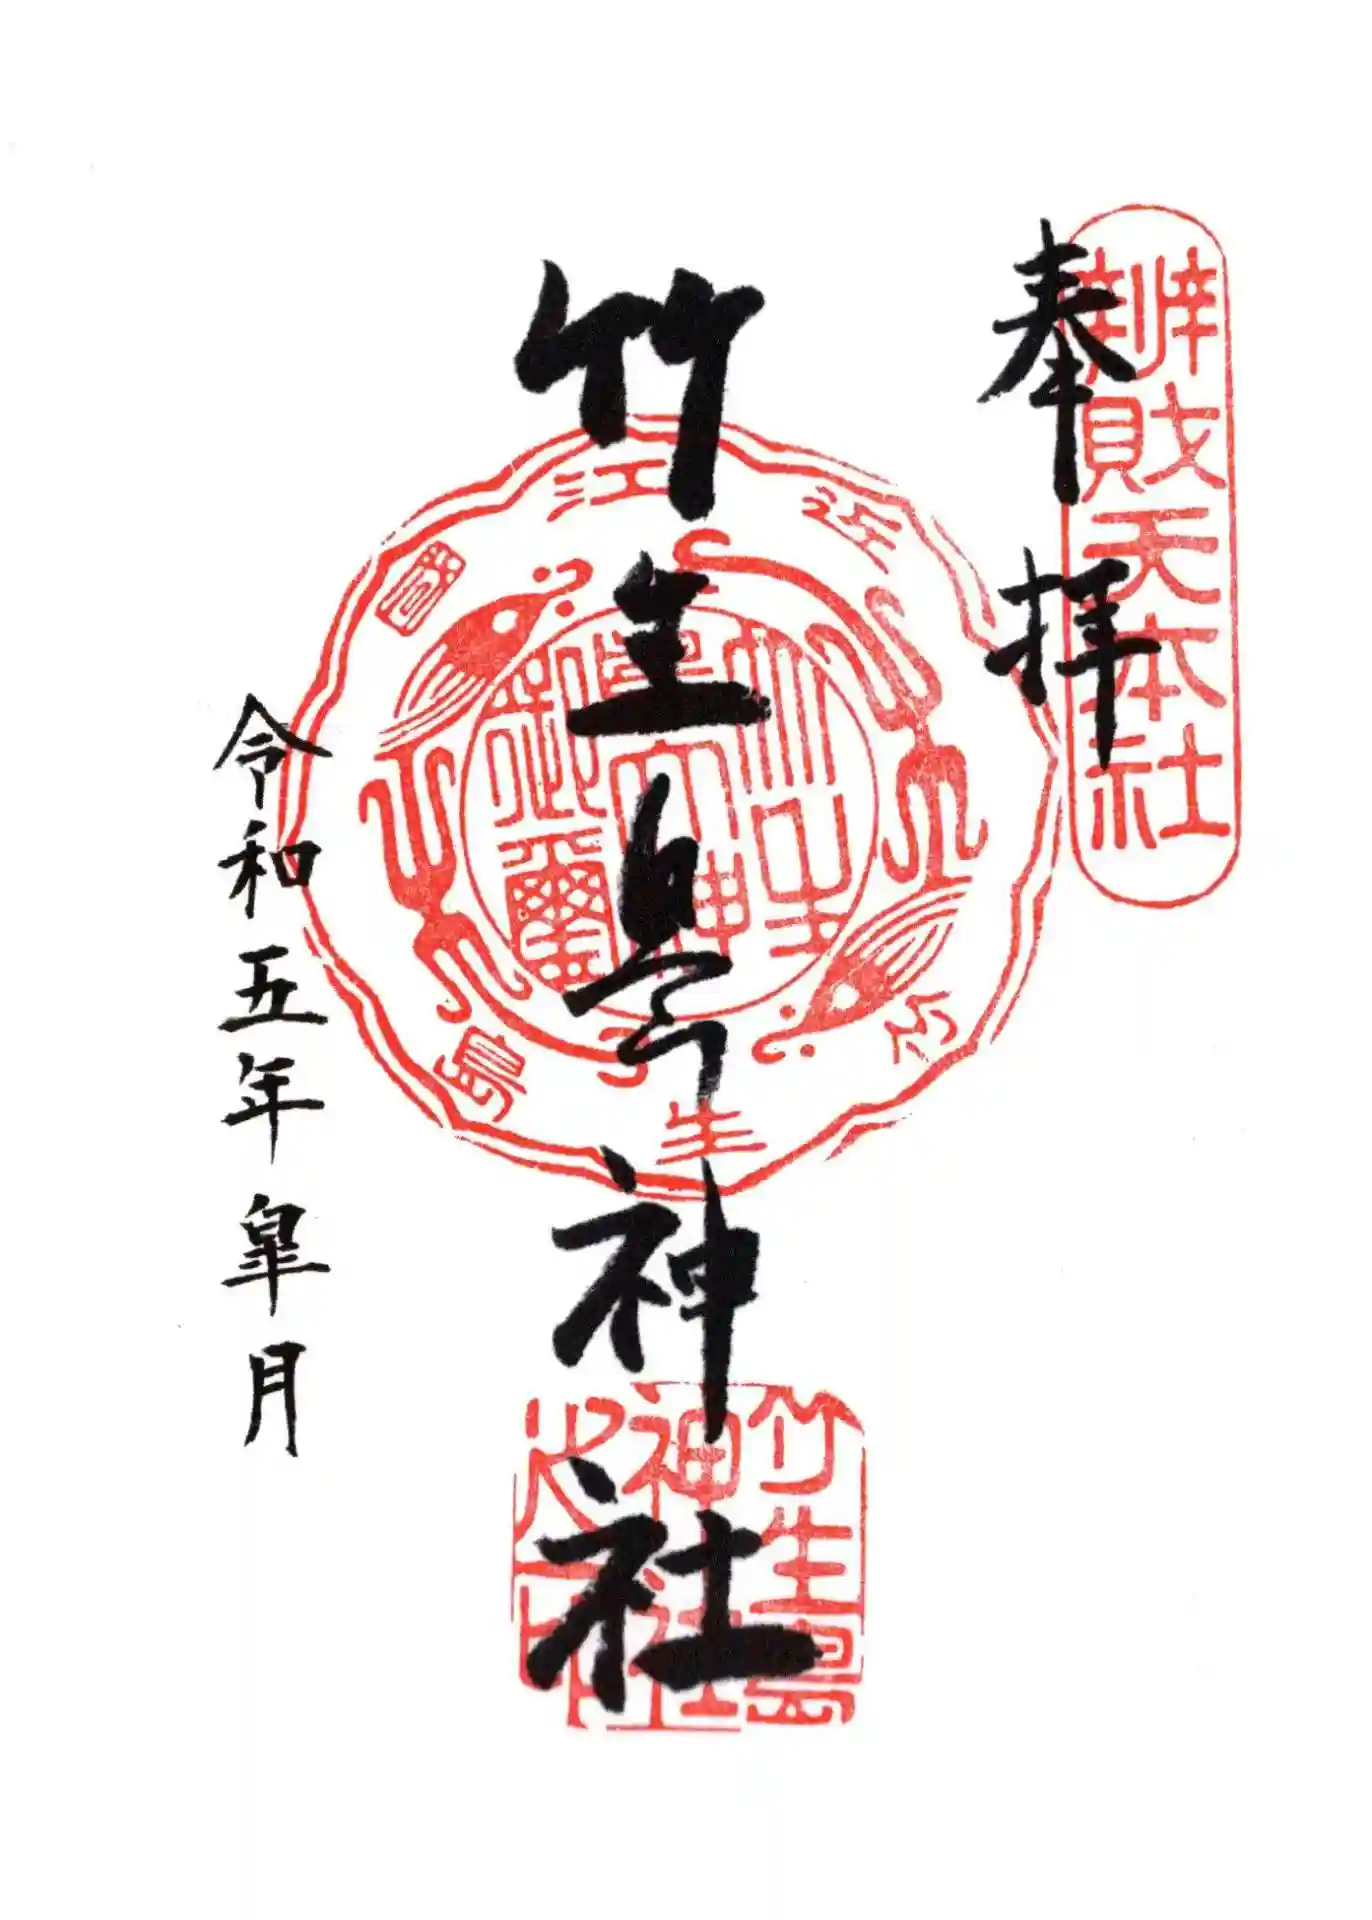 奉拝
辨財天本社
竹生島神社
近江國
竹生島
竹生島神社之印
令和五年皐月